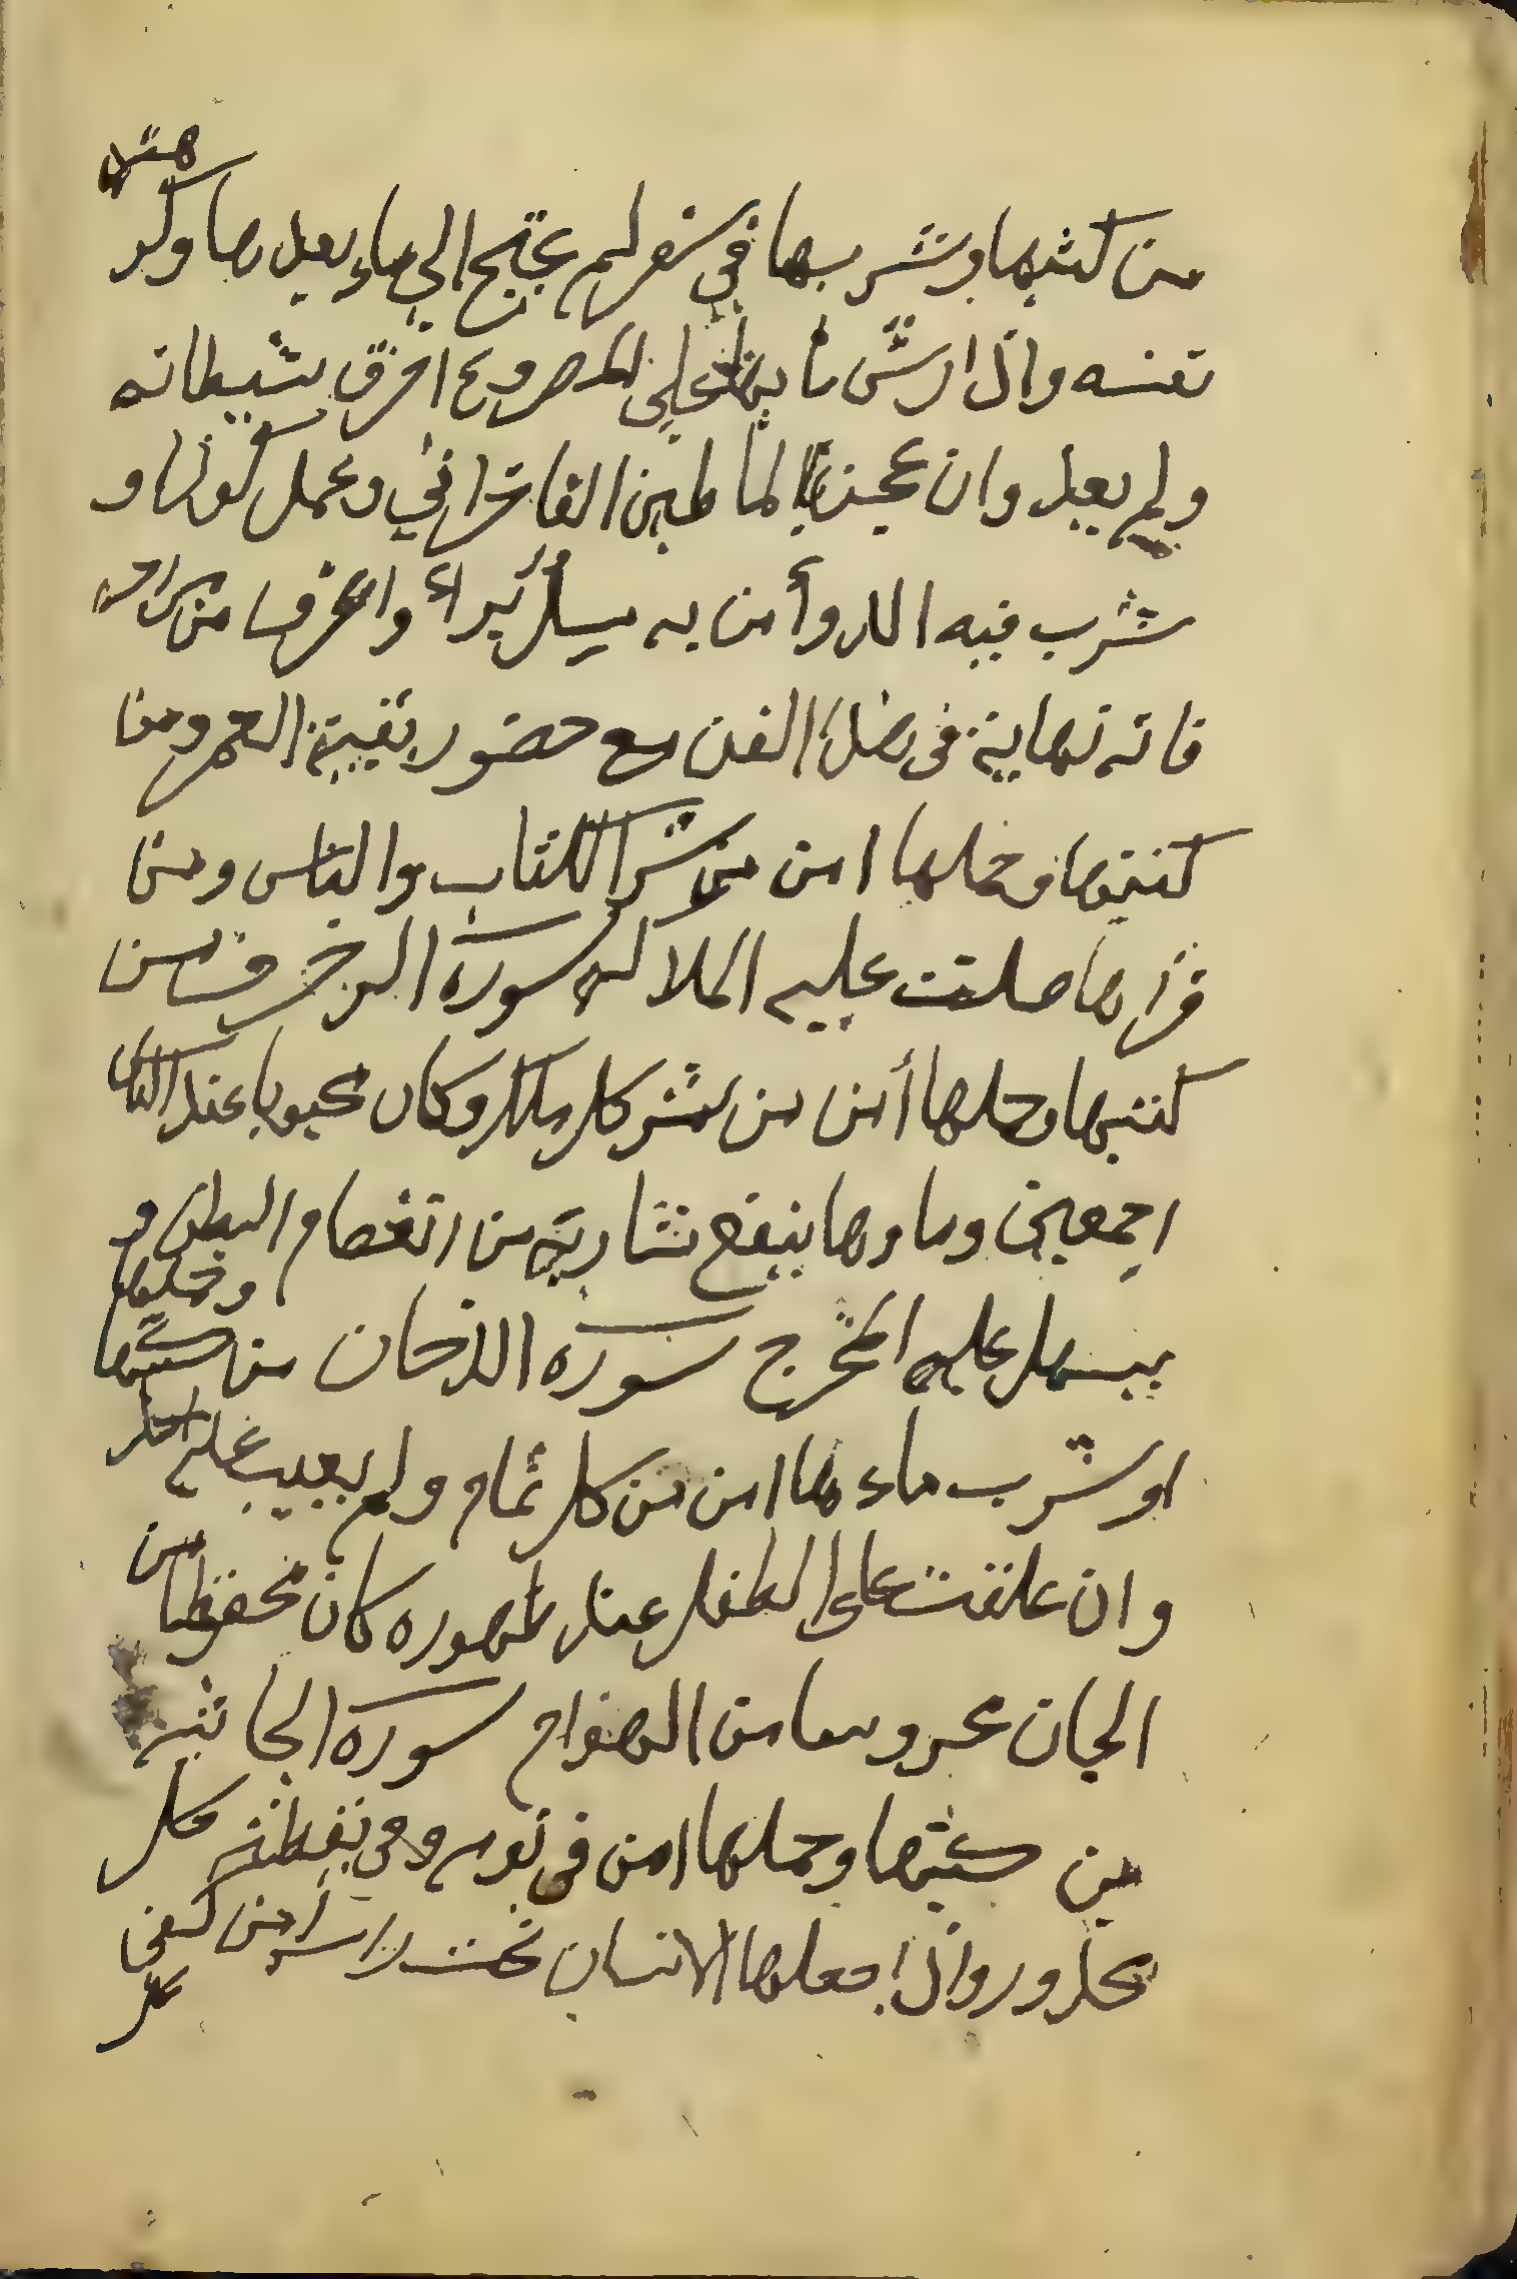 من كتبها وشربها في سفر لم يحتج الي ماء بعدها وكر هتـ
نفسه واذا رش ماء بها على المصروع احرق شيطانه
ولم يعد وان عجن بالما طين الفاخراني وعمل كوزا و
شرب فيه الدوأ من به سل يبراء واعرف من
فانه نهاية في هذا الفن مع حضور بقية العمر ومن
كتبها وحملها امن من شر الكتاب والناس ومن
قراها صلت عليه الملائكه سورة الزخرف من
كتبها وحملها أمن من شر كل ملك وكان محبوبا عند الناس
اجمعين وماوها ينفع شاربه من انفصام البطن و
يسهل عليه المخرج سورة الدخان من كتبها وحملها
او شرب ماء ها امن من كل نمام ولم يعيب عليه
وان علقت على الطفل عند ظهوره كان محفوظا من
الجان محروسا من الهوام سورة الجاثيه
من كتبها وحملها امن في نومه وفي يقظته كل
محذور واذا جعلها الانسان تحت راسه أمن كفي